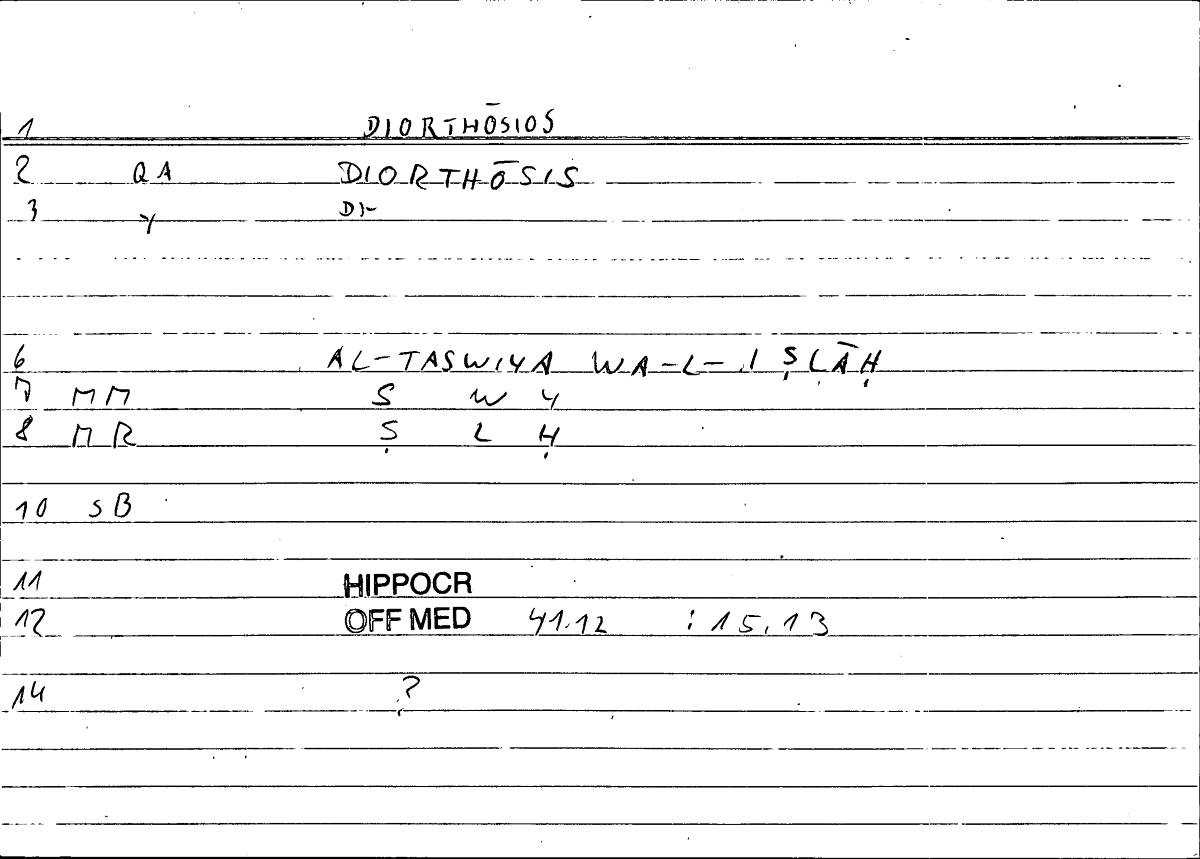 1 DIORTHŌSIOS
2 QA DIORTHŌSIS
3 Y DI-
6 AL-TASWIYA WA-L-IṢLĀḤ
7 MM S W Y
8 MR Ṣ L Ḥ
10 SB
11 HIPPOCR
12 OFF MED 41.12 : 15,13
14 ?